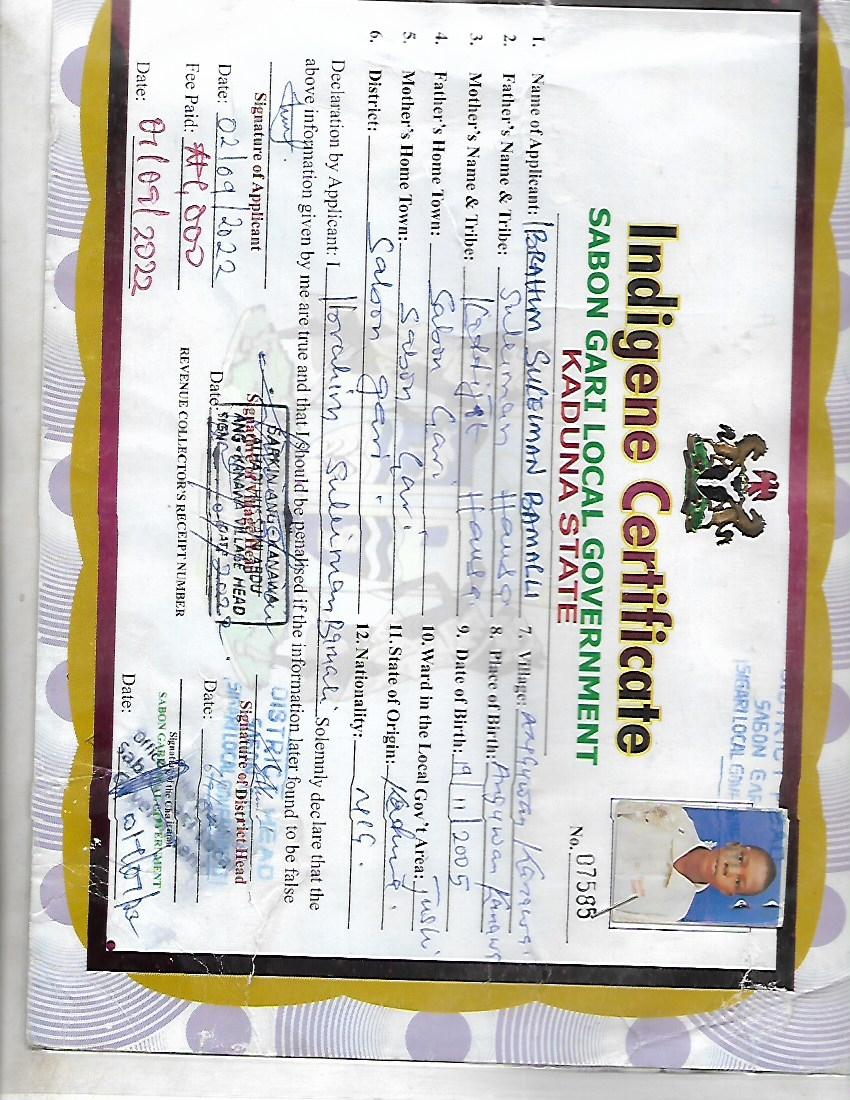 Indigene Certificate
SABON GARI LOCAL GOVERNMENT
KADUNA STATE
SABON GAR
No. 07585
1. Name of Applicant: IBRAHIM SULEIMAN BAMALLI
2. Father's Name & Tribe: Suleiman Hausa
3. Mother's Name & Tribe: Hausa
4. Father's Home Town: Sabon Gari
5. Mother's Home Town: Sabon Gari
6. District: Sabon gari
7. Village:
8. Place of Birth: Angwan
9. Date of Birth: 19/11/2005
10. Ward in the Local Gov't Area:
11. State of Origin: Kaduna
12. Nationality: NIG.
Declaration by Applicant: I Ibrahim Suleiman Bamalli Solemnly declare that the
above information given by me are true and that I should be penalised if the information later found to be false
Signature of Applicant
Date: 02/09/2022
Fee Paid:
Date: 01/09/2022
Signature of Village Head
VILLAGE HEAD
Date:
REVENUE COLLECTOR'S RECEIPT NUMBER
DISTRICT HEAD
Signature of District Head
Date:
Signature of the Chairman
SABON GARI LOCAL GOVERNMENT
Date: